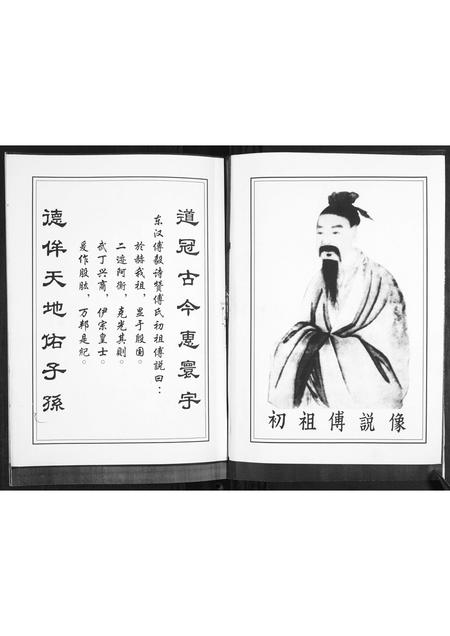 初祖傅説像
道冠古今惠寰宇
东汉傅毅诗赞傅氏初祖傅説曰：
於赫我祖，显于殷国。
二迹阿衡，克光其则。
武丁兴商，伊宗皇士。
爰作股肱，万邦是纪。
德侔天地佑子孫